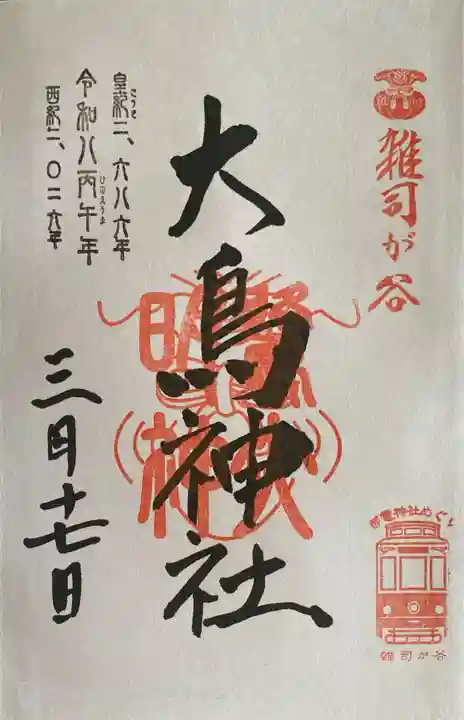 雑司が谷
大鳥神社
皇紀二、六八六年
こうき
令和八丙午年
ひのえうま
西紀二、〇二六年
三月十七日
都電神社めぐり
雑司が谷